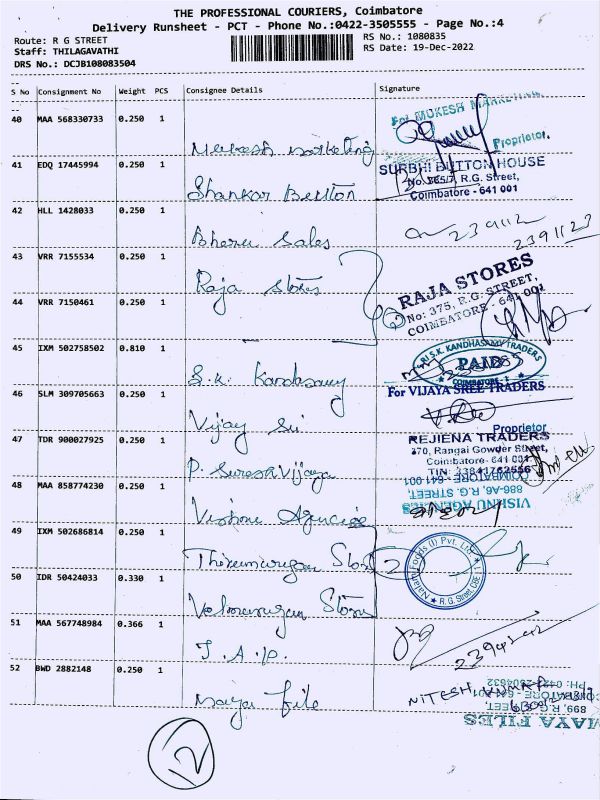 THE PROFESSIONAL COURIERS, Coimbatore
Delivery Runsheet - PCT - Phone No.:0422-3505555 - Page No.:4
Route: R G STREET
Staff: THILAGAVATHI
DRS No.: DCJB108083504
RS No.: 1080835
RS Date: 19-Dec-2022
S No Consignment No Weight PCS Consignee Details Signature
40 MAA 568330733 0.250 1 Mukesh marketing
For MUKESH MARKETING
Proprietor.
41 EDQ 17445994 0.250 1 Shankar Button
SURBHI BUTTON HOUSE
No. 365/7, R.G. Street,
Coimbatore - 641 001
42 HLL 1428033 0.250 1 Bheru Sales
43 VRR 7155534 0.250 1 Raja Stores
RAJA STORES
No: 375, R.G. STREET,
COIMBATORE - 641 001
44 VRR 7150461 0.250 1
45 IXM 502758502 0.810 1 S.K. Kandasamy
SRI S.K. KANDHASAMY TRADERS
PAID
COIMBATORE - 1
46 SLM 309705663 0.250 1 Vijay Sri
For VIJAYA SREE TRADERS
Proprietor
47 TDR 900027925 0.250 1 P. Suresh Vijaya
REJIENA TRADERS
270, Rangai Gowder Street,
Coimbatore- 641 001
48 MAA 858774230 0.250 1 Vishnu Agencies
VISHNU AGENCIES
886-A6, R.G. STREET,
COIMBATORE - 641 001
49 IXM 502686814 0.250 1 Thirumurugan Stores
50 IDR 50424033 0.330 1 Velmurugan Stores
Foods (I) Pvt. Ltd.
R.G. Street, CBE
51 MAA 567748984 0.366 1 J.A.P.
52 BWD 2882148 0.250 1 Maya file
NITESH
MAYA FILES
899, R.G. STREET,
12